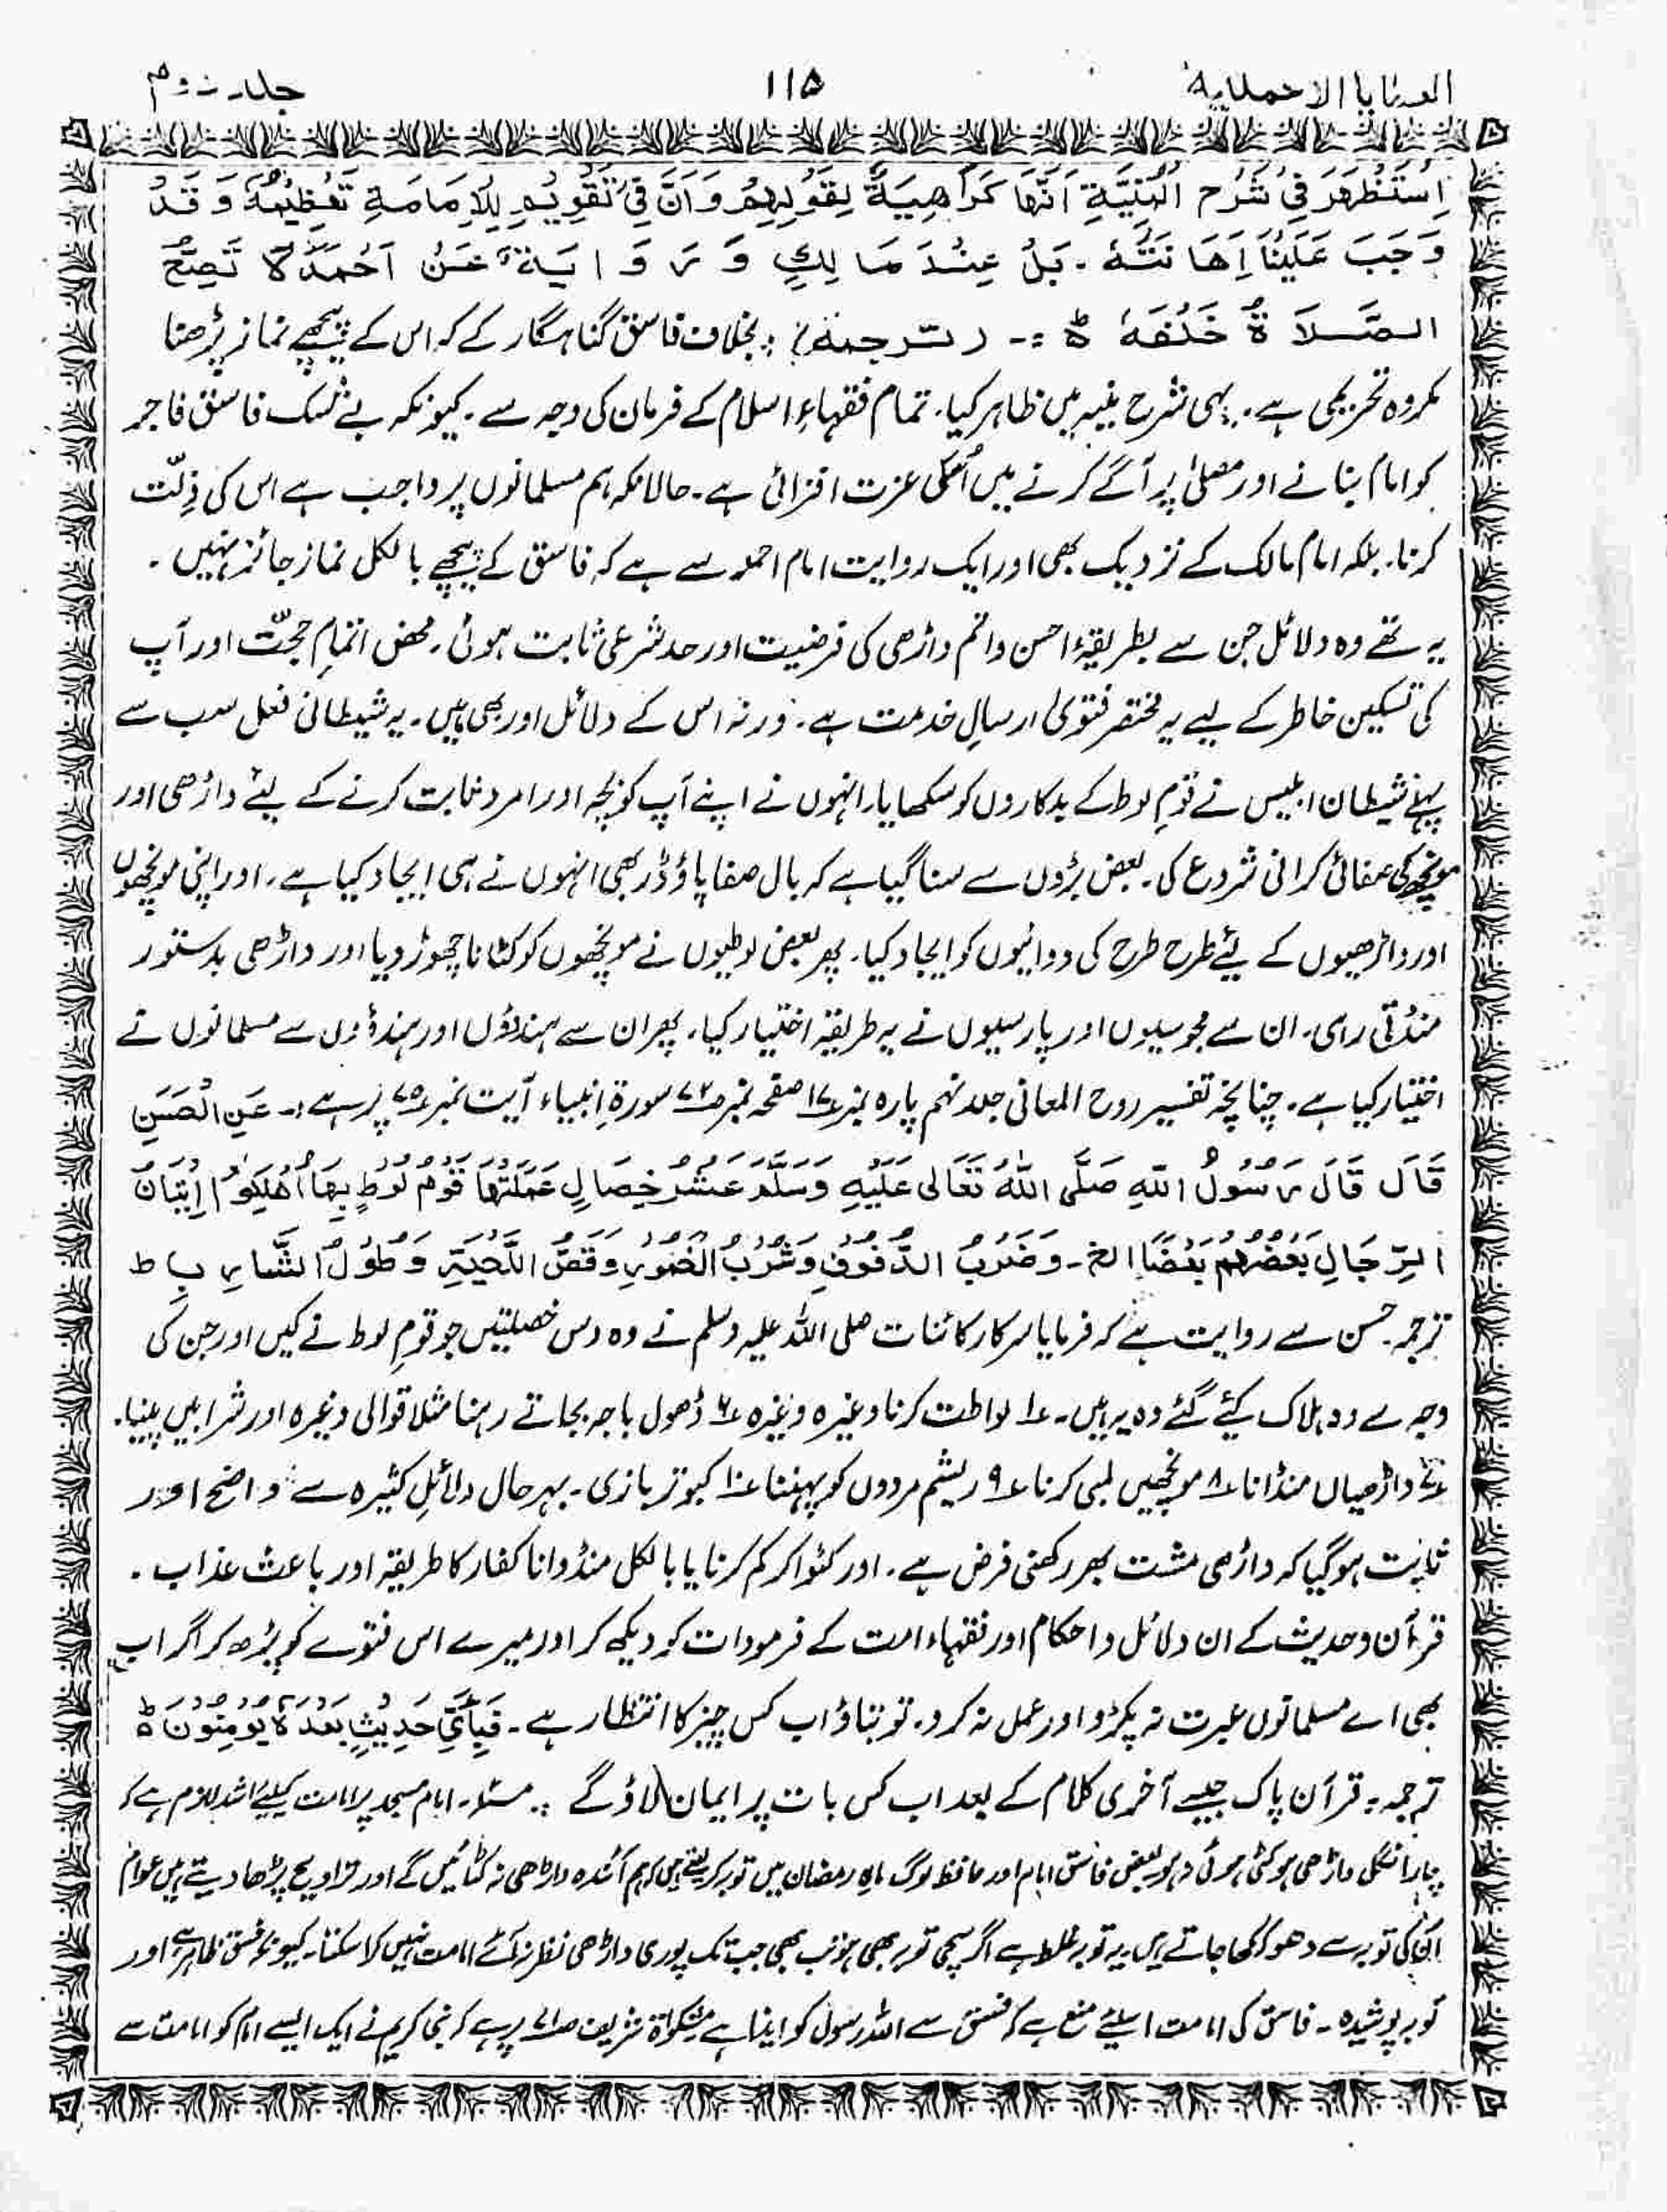 العطایا الاحمدیه ۱۱۵ جلد دوم
اِسْتَظْهَرَ فِیْ شَرْحِ الْمُنِیَّةِ اَنَّهَا كَرَاهِیَةٌ لِقَوْلِهِمْ وَاَنَّ فِیْ تَقْوِیْمِ لِلْاِمَامَةِ تَعْظِیْمُهٗ وَ قَدْ
وَجَبَ عَلَیْنَا اِهَا نَتُهٗ ۔ بَلْ عِنْدَ مَا لِكٍ وَ رِ وَ ا یَةٌ عَنْ اَحْمَدَ لَا تَصِحُّ
الصَّلَا ةُ خَلْفَهٗ ط :۔ (ترجمہ) : بخلاف فاسق گناہگار کے کہ اس کے پیچھے نماز پڑھنا
مکروہ تحریمی ہے۔ یہی شرح منیہ میں ظاہر کیا۔ تمام فقہاءِ اسلام کے فرمان کی وجہ سے۔ کیونکہ بے شک فاسق فاجر
کو امام بنانے اور مصلیٰ پر آگے کرنے میں اُسکی عزت افزائی ہے۔ حالانکہ ہم مسلمانوں پر واجب ہے اس کی ذِلّت
کرنا۔ بلکہ امام مالک کے نزدیک بھی اور ایک روایت امام احمد سے ہے کہ فاسق کے پیچھے بالکل نماز جائز نہیں ۔
یہ تھے وہ دلائل جن سے بطریقۂ احسن واتم داڑھی کی فرضیت اور حد شرعی ثابت ہوئی۔ محض اتمامِ حجّت اور آپ
کی تسکین خاطر کے لیے یہ مختصر فتویٰ ارسالِ خدمت ہے۔ ورنہ اس کے دلائل اور بھی ہیں۔ یہ شیطانی فعل سب سے
پہلے شیطان ابلیس نے قومِ لوط کے بدکاروں کو سکھایا۔ انہوں نے اپنے آپ کو بچہ اور امرد ثابت کرنے کے لئے داڑھی اور
مونچھ کی صفائی کرانی شروع کی۔ بعض بڑوں سے سنا گیا ہے کہ بال صفا پاؤڈر بھی انہوں نے ہی ایجاد کیا ہے۔ اور اپنی مونچھوں
اور داڑھیوں کے لئے طرح طرح کی دوائیوں کو ایجاد کیا۔ پھر بعض لوطیوں نے مونچھوں کو کٹانا چھوڑ دیا اور داڑھی بدستور
منڈتی رہی۔ ان سے مجوسیوں اور پارسیوں نے یہ طریقہ اختیار کیا۔ پھر ان سے ہندؤں اور ہندؤوں سے مسلمانوں نے
اختیار کیا ہے۔ چنانچہ تفسیر روح المعانی جلد نہم پارہ نمبر ۱۷ صفحہ نمبر ۷۲ سورۃ انبیاء آیت نمبر ۷۵ پر ہے :۔ عَنِ الْحَسَنِ
قَالَ قَالَ رَسُوْلُ اللهِ صَلَّى اللهُ تَعَالٰى عَلَیْهِ وَسَلَّمَ عَشْرُ خِصَالٍ عَمَلَتْهَا قَوْمُ لُوْطٍ بِهَا اُهْلِكُوْا اِتْیَانُ
الرِّجَالِ بَعْضُهُمْ بَعْضًا الخ ۔ وَضَرْبُ الدُّفُوْفِ وَشُرْبُ الْخُمُوْرِ وَقَصُّ اللِّحْیَةِ وَ طُوْلُ الشَّارِ بِ ط
ترجمہ۔ حسن سے روایت ہے کہ فرمایا سرکار کائنات صلی اللہ علیہ وسلم نے وہ دس خصلتیں جو قومِ لوط نے کیں اور جن کی
وجہ سے وہ ہلاک کیئے گئے وہ یہ ہیں۔ ۱ لواطت کرنا وغیرہ وغیرہ ۶ ڈھول باجہ بجاتے رہنا مثلا قوالی وغیرہ اور شرابیں پینا۔
۷ داڑھیاں منڈانا ۸ مونچھیں لمبی کرنا ۹ ریشم مردوں کو پہننا ۱۰ کبوتر بازی۔ بہرحال دلائلِ کثیرہ سے واضح اور
ثابت ہو گیا کہ داڑھی مشت بھر رکھنی فرض ہے۔ اور کٹوا کر کم کرنا یا بالکل منڈوانا کفار کا طریقہ اور باعث عذاب ۔
قرآن و حدیث کے ان دلائل واحکام اور فقہاء امت کے فرمودات کہ دیکھ کر اور میرے اس فتوے کو پڑھ کر اگر اب
بھی اے مسلمانوں عبرت نہ پکڑو اور عمل نہ کرو۔ تو بتاؤ اب کس چیز کا انتظار ہے۔ فَبِاَیِّ حَدِیْثٍ بَعْدَهٗ یُؤْمِنُوْنَ ط
ترجمہ: قرآن پاک جیسے آخری کلام کے بعد اب کس بات پر ایمان لاؤ گے :۔ مسئلہ۔ امام مسجد پر امامت کیلیئے اشد لازم ہے کہ
چار انگلی داڑھی ہو کٹی ہوئی نہ ہو بعض فاسق امام اور حافظ لوگ ماہِ رمضان میں توبہ کر لیتے ہیں کہ ہم آئندہ داڑھی نہ کٹائیں گے اور تراویح پڑھا دیتے ہیں عوام
ان کی توبہ سے دھوکہ کھا جاتے ہیں۔ یہ توبہ غلط ہے اگر سچی توبہ بھی ہو تب بھی جب تک پوری داڑھی نظر نہ آئے امامت نہیں کرا سکتا۔ کیونکہ فسق ظاہر ہے اور
توبہ پوشیدہ ۔ فاسق کی امامت اسلیئے منع ہے کہ فسق سے اللہ رسول کو ایذا ہے مشکوٰۃ شریف ص ۷۱ پر ہے کہ نبی کریم نے ایک ایسے امام کو امامت سے